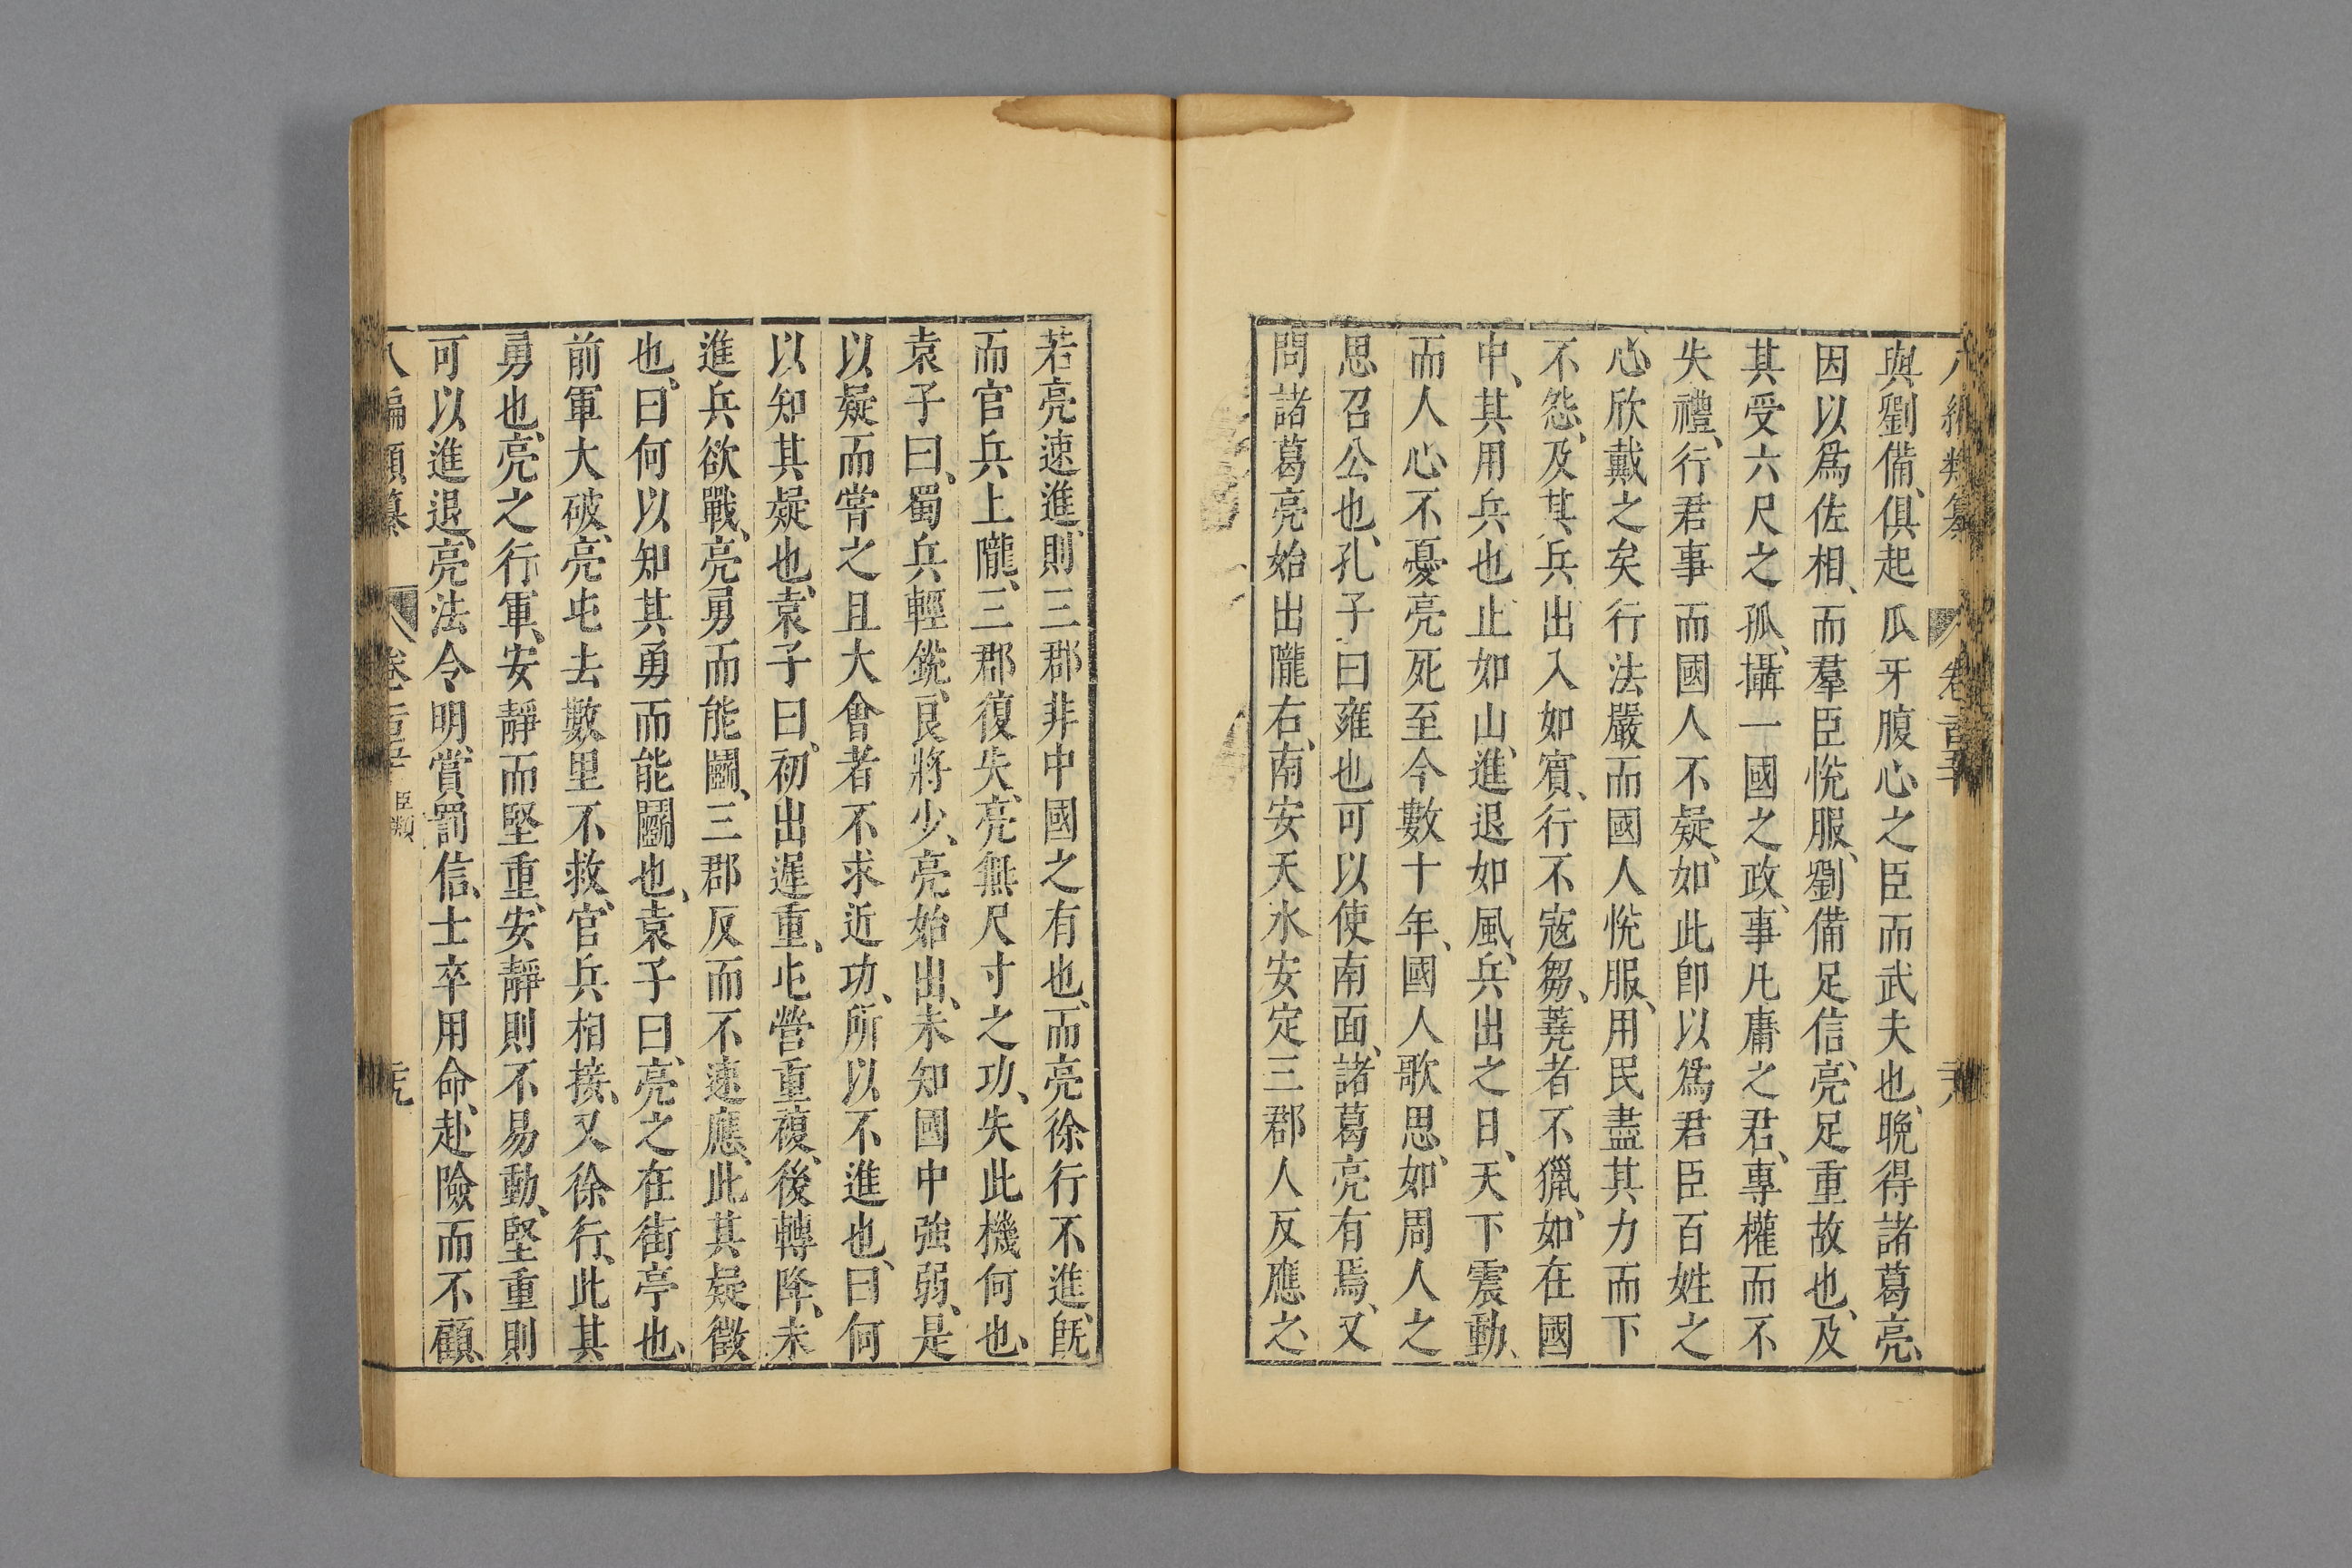 與劉備俱起爪牙腹心之臣而武夫也晚得諸葛亮
因以爲佐相而羣臣悅服劉備足信亮足重故也及
其受六尺之孤攝一國之政事凡庸之君專權而不
失禮行君事而國人不疑如此卽以爲君臣百姓之
心欣戴之矣行法嚴而國人悅服用民盡其力而下
不怨及其兵出入如賓行不寇芻蕘者不獵如在國
中其用兵也止如山進退如風兵出之日天下震動
而人心不憂亮死至今數十年國人歌思如周人之
思召公也孔子曰雍也可以使南面諸葛亮有焉又
問諸葛亮始出隴右南安天水安定三郡人反應之
若亮速進則三郡非中國之有也而亮徐行不進旣
而官兵上隴三郡復失亮無尺寸之功失此機何也
袁子曰蜀兵輕銳良將少亮始出未知國中強弱是
以疑而嘗之且大會者不求近功所以不進也曰何
以知其疑也袁子曰初出遲重屯營重複後轉降未
進兵欲戰亮勇而能鬭三郡反而不速應此其疑徵
也曰何以知其勇而能鬭也袁子曰亮之在街亭也
前軍大破亮屯去數里不救官兵相接又徐行此其
勇也亮之行軍安靜而堅重安靜則不易動堅重則
可以進退亮法令明賞罰信士卒用命赴險而不顧
臣類